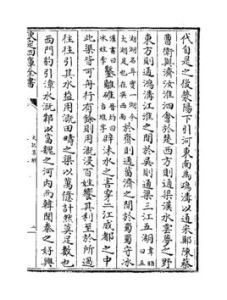 代自是之後滎陽下引河東南為鴻溝以通宋鄭陳蔡
曹衛與濟汝淮泗會於楚西方則通渠漢水雲夢之野
東方則通鴻溝江淮之間於吳則通渠三江五湖韋昭曰五湖
湖名耳實一湖今太湖是也在吳西南於齊則通菑濟之間於蜀蜀守冰
漢書曰冰姓李鑿離碓晉灼曰古堆字也辟沫水之害穿二江成都之中
此渠皆可舟行有餘則用溉浸百姓饗其利至於所過
往往引其水益用溉田疇之渠以萬億計然莫足數也
西門豹引漳水溉鄴以富魏之河內而韓聞秦之好興
欽定四庫全書
史記集解